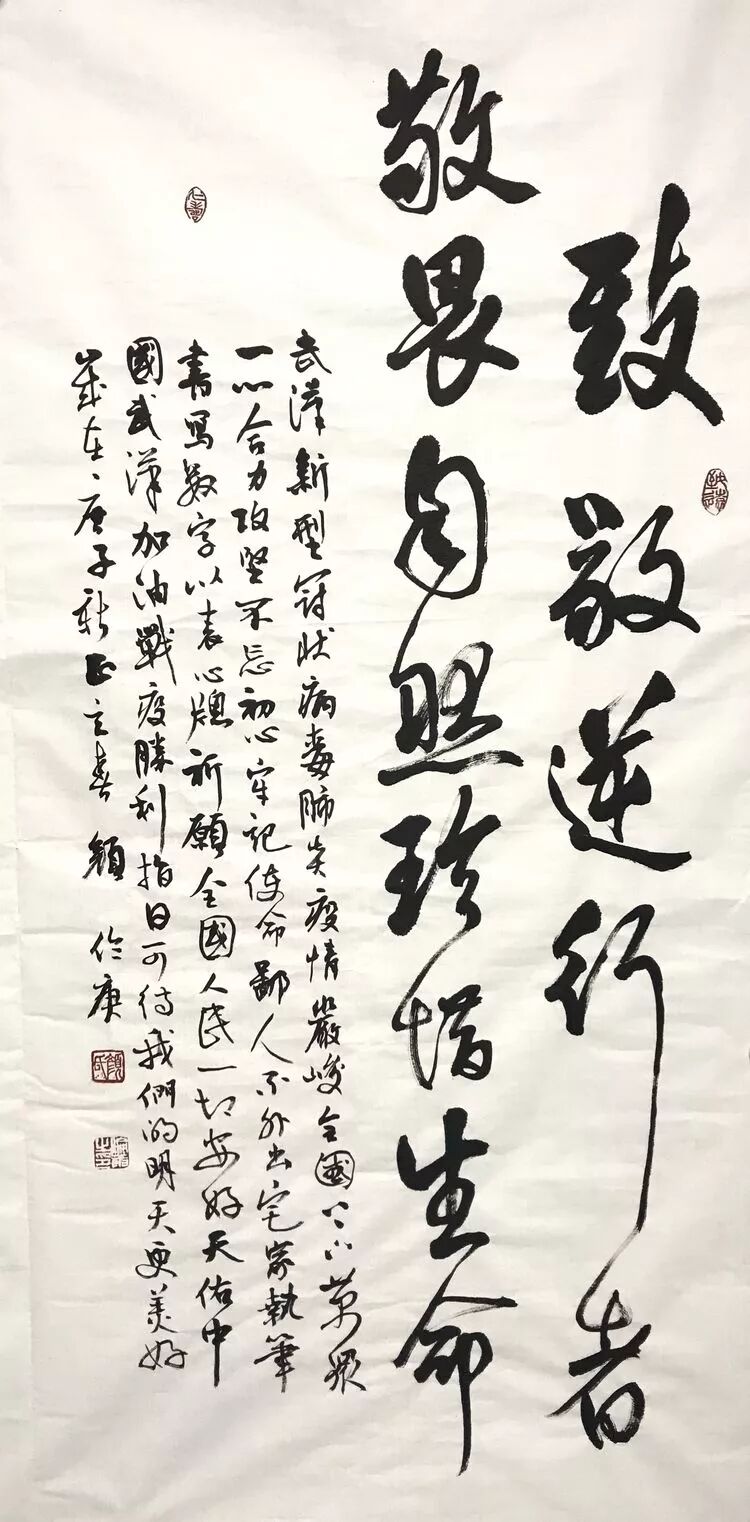 致敬逆行者
敬畏自然珍惜生命
武漢新型冠狀病毒肺炎疫情嚴峻全國上下萬眾
一心合力攻堅不忘初心牢記使命鄙人不外出宅家執筆
書寫數字以表心煺祈願全國人民一切安好天佑中
國武漢加油戰疫勝利指日可待我們的明天更美好
歲在庚子新正立春 顏 伶庚